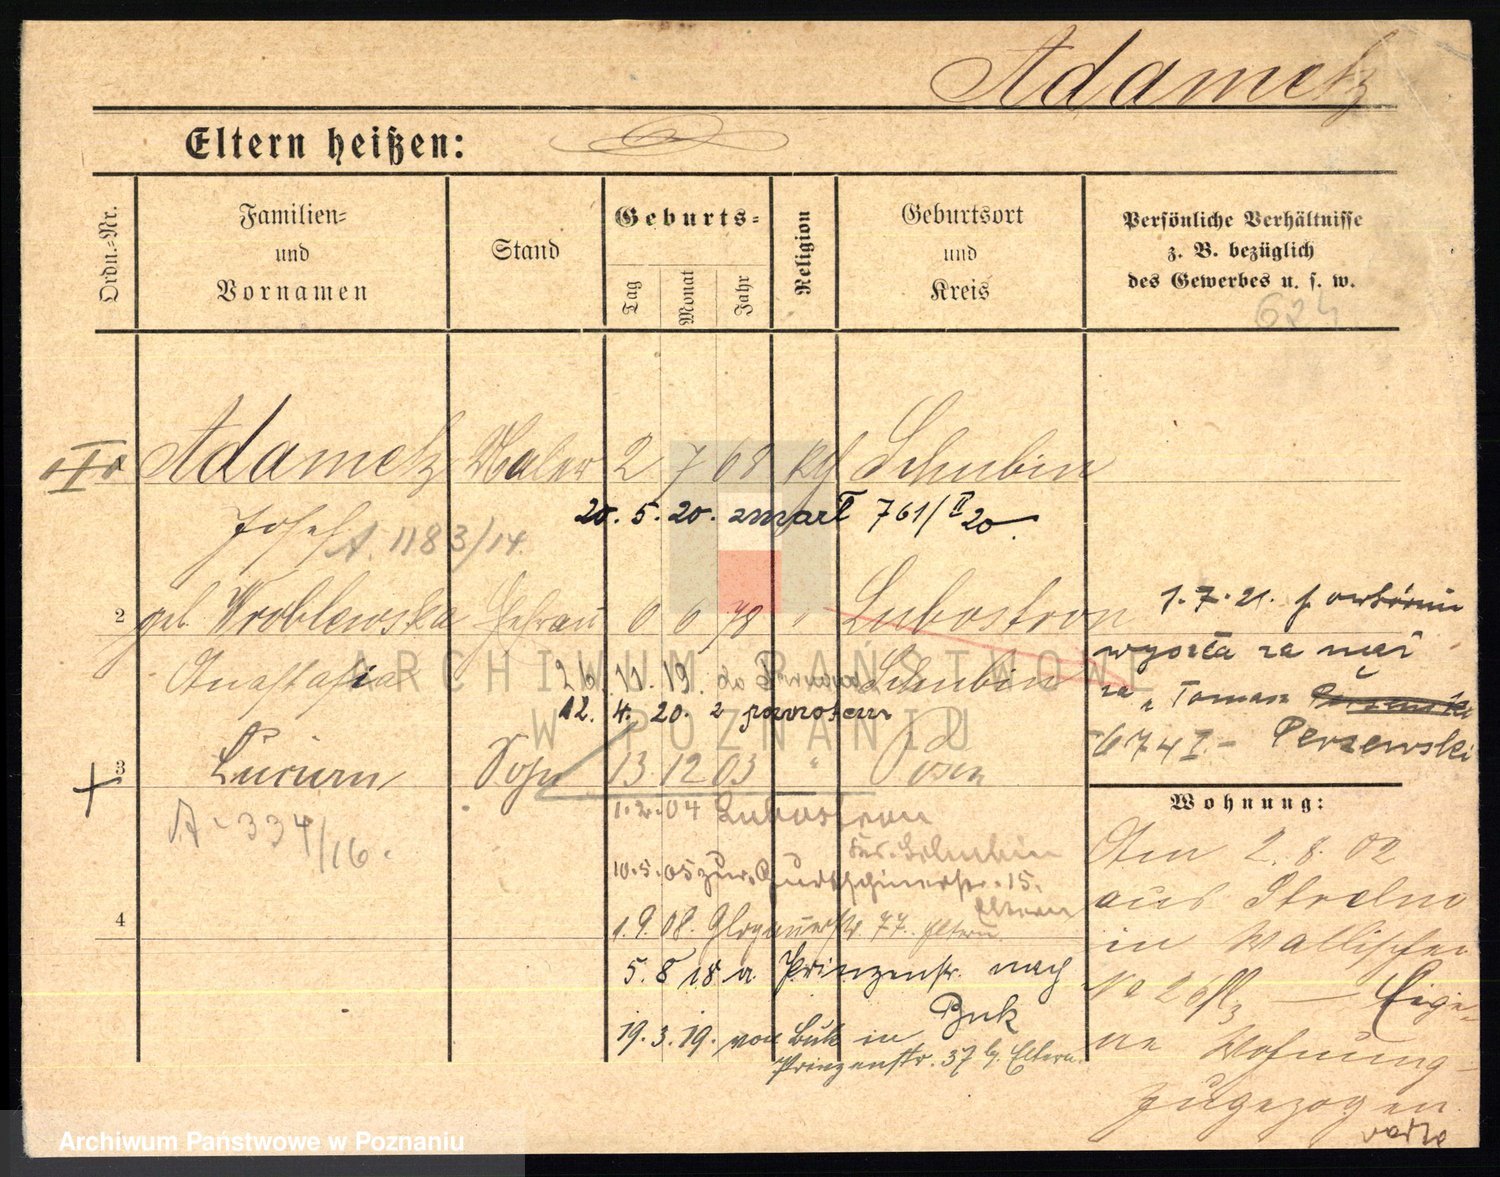 Adametz
Eltern heißen:
Ordn.-Nr.
Familien-
und
Vornamen
Stand
Geburts-
Tag
Monat
Jahr
Religion
Geburtsort
und
Kreis
Persönliche Verhältnisse
z. B. bezüglich
des Gewerbes u. s. w.
624
Adametz Maler 2 7 68 kth Schubin
20. 5. 20. zmarł 761/II 20
Josef A. 1183/14.
2 geb. Wroblewska Ehefrau 0 0 78 " Lubostron
Anastasia Schubin
26. 11. 19. do
12. 4. 20. z powrotem
1.7.21.
wyszła za mąż
za Tomasz
6741 - Perzewski
3 Lucian Sohn 13 12 03 " Posen
A - 334/16.
1.2.04 Lubostron
Krs. Schubin
10.5.05 zur. Gurtschinerstr. 15.
Eltern
4
1.9.08. Glogauerstr. 77. Eltern
5. 8 18 a Prinzenstr. nach
Buk
19. 3. 19. von Buk in
Prinzenstr. 37 b. Eltern.
Wohnung:
Am 2. 8. 02
aus Strelno
in Wallischei
No 26 - Eige-
ne Wohnung
zugezogen
ARCHIWUM PAŃSTWOWE
W POZNANIU
Archiwum Państwowe w Poznaniu